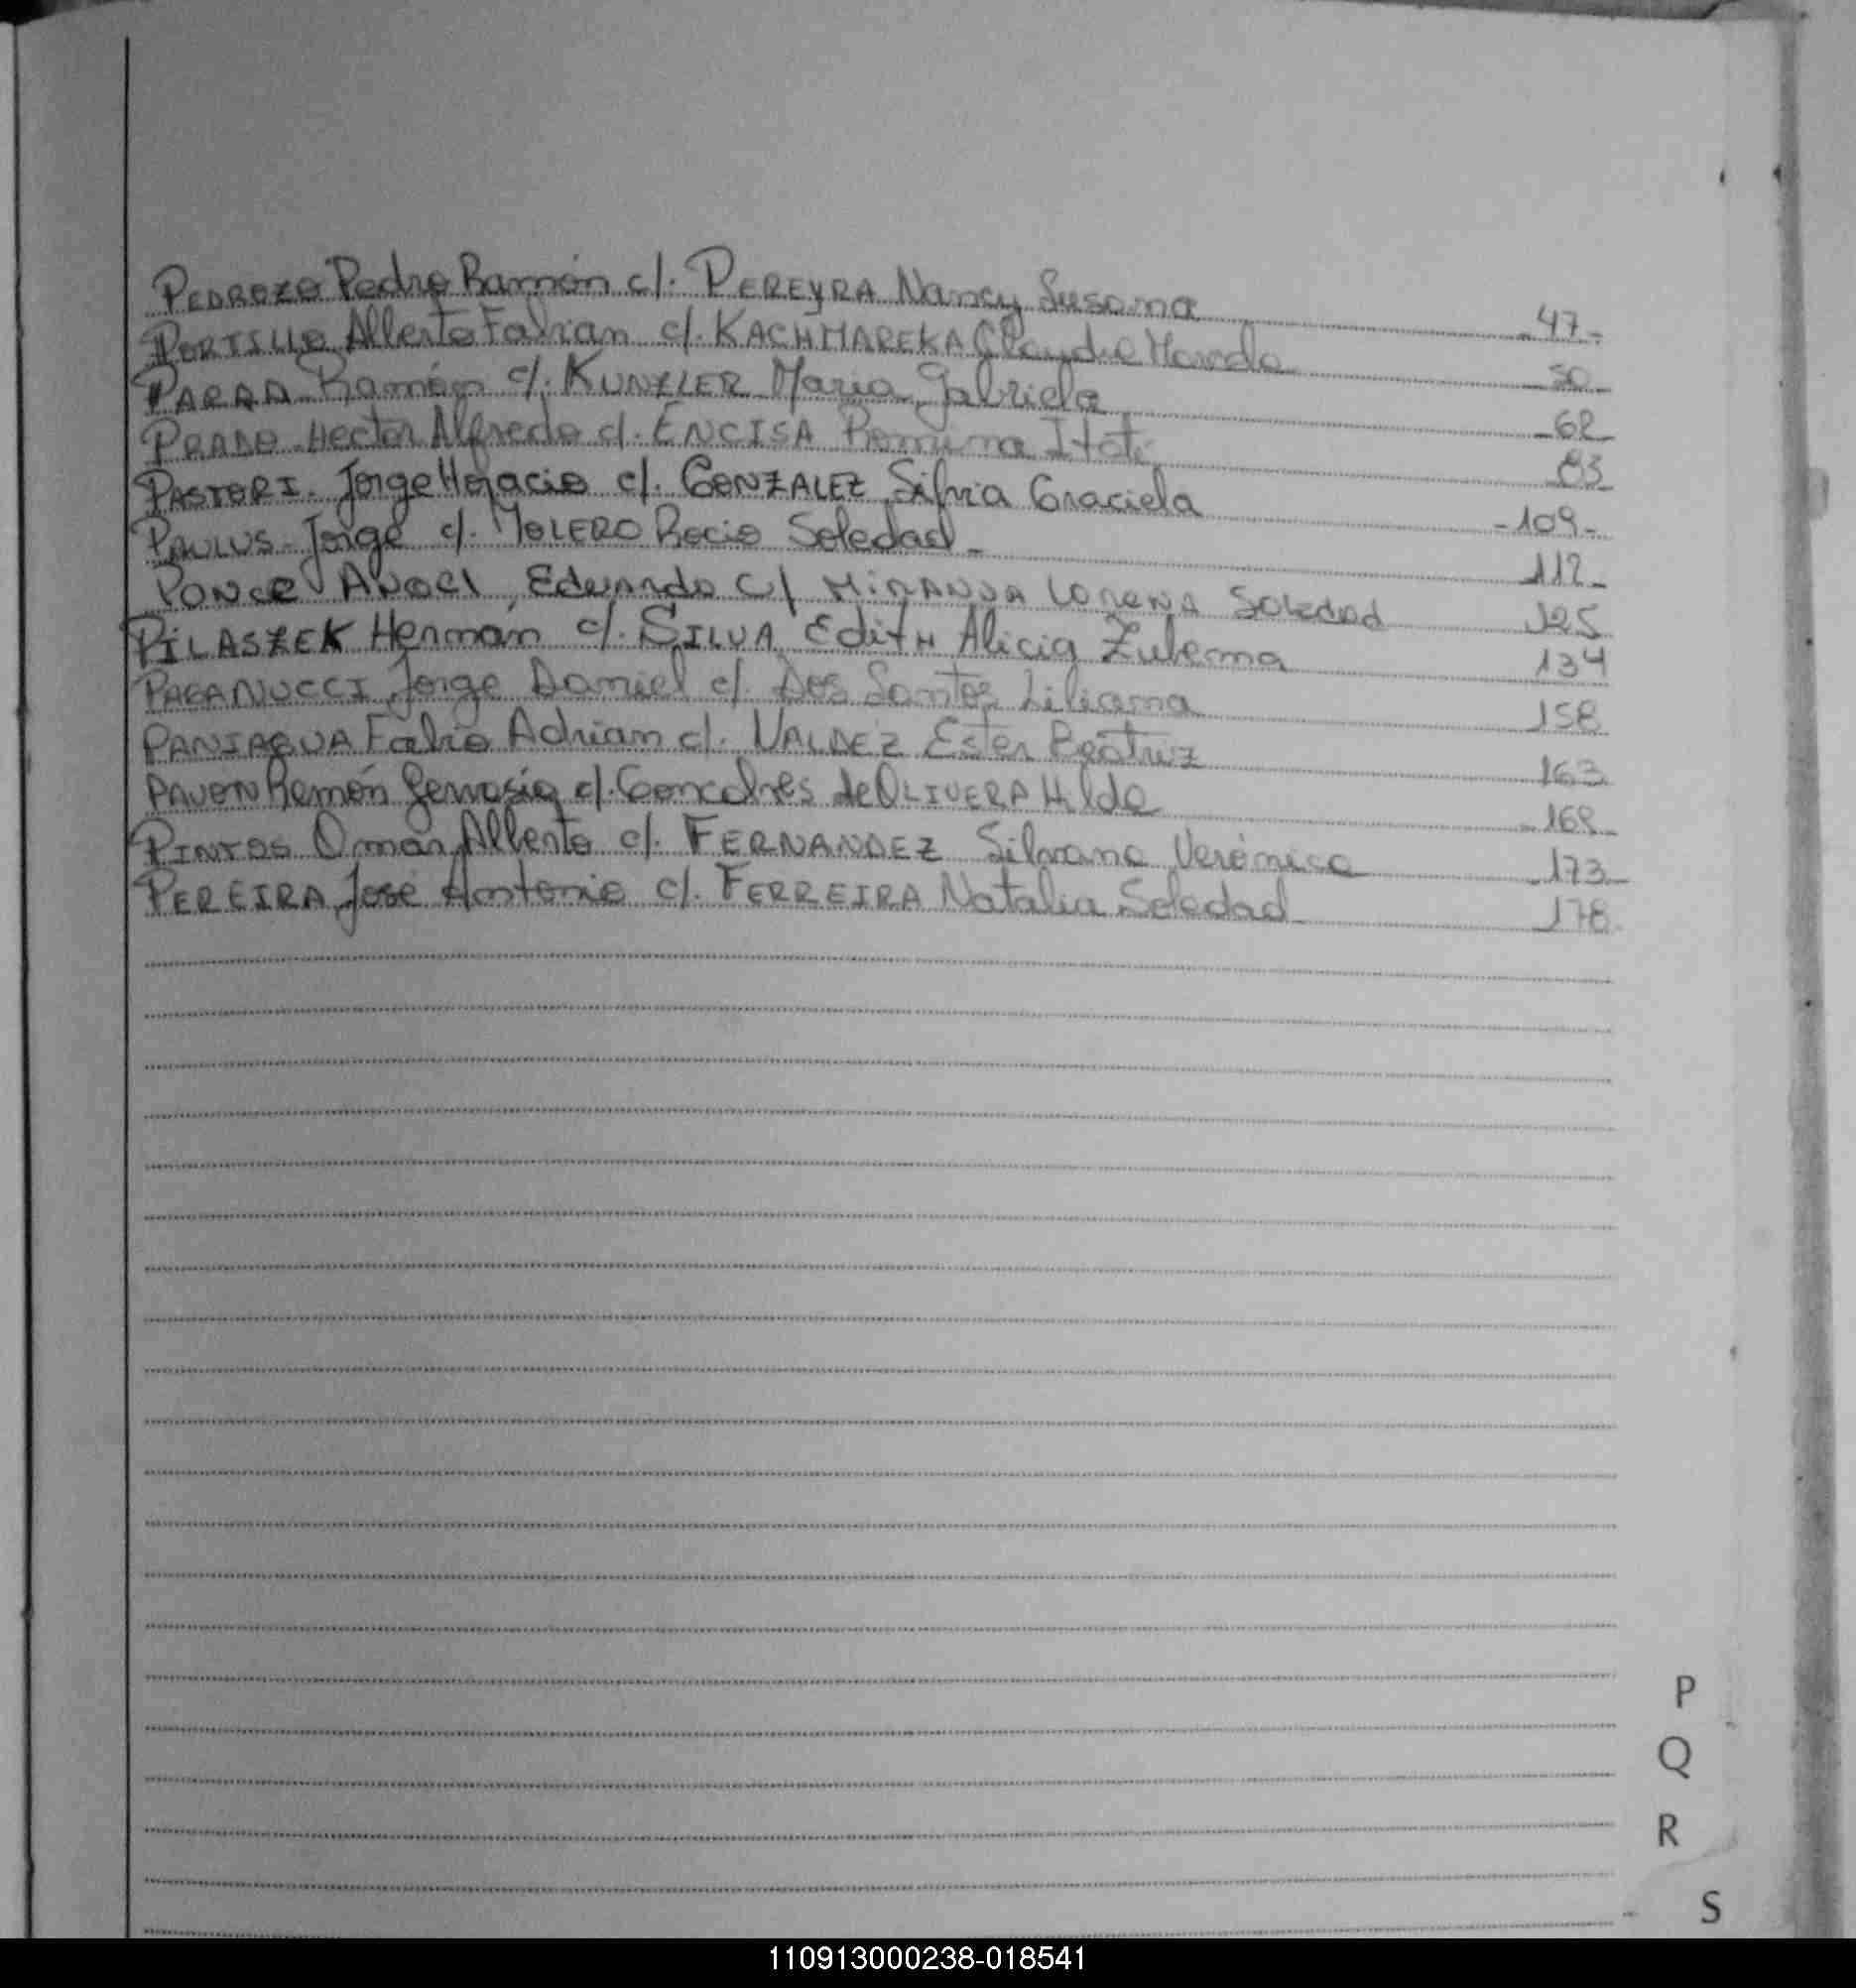 PEDROZO Pedro Ramón c/. PEREYRA Nancy Susana 47-
PORTILLO Alberto Fabian c/. KACHMAREKA Claudia Mareda 50-
PARRA Ramón c/. KUNZLER Maria Gabriela 62-
PRADO Hector Alfredo c/. ENCISA Romina Itati 83
PASTORI. Jorge Horacio c/. GONZALEZ Silvia Graciela -109-
PAULUS- Jorge c/. MOLERO Rocio Soledad- 112-
PONCE Eduardo c/ MIRANDA LORENA Soledad 125
PILASZEK Herman c/. SILVA Edith Alicia Zulema 134
PAGANUCCI Jorge Daniel c/. Dos Santos Liliana 158
PANIAGUA Fabio Adrian c/. VALDEZ Ester Beatriz 163
PAVON Ramón Gervasio c/. Goncalves de OLIVERA Hilda 168
PINTOS Omar Alberto c/. FERNANDEZ Silvana Verónica 173
PEREIRA José Antonio c/. FERREIRA Natalia Soledad 178
P
Q
R
S
110913000238-018541